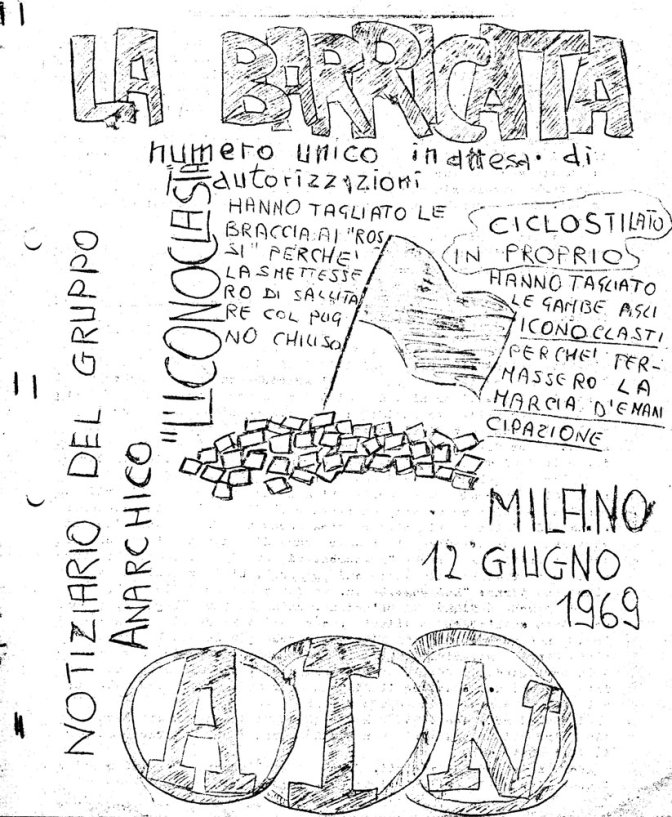 LA BARRICATA
numero unico in attesa di
autorizzazioni
NOTIZIARIO DEL GRUPPO
ANARCHICO
"L'ICONOCLASTA
HANNO TAGLIATO LE
BRACCIA AI "ROS
SI" PERCHE'
LA SMETTESSE
RO DI SALUTA
RE COL PUG
NO CHIUSO
CICLOSTILATO
IN PROPRIO
HANNO TAGLIATO
LE GAMBE AGLI
ICONOCLASTI
PERCHE' FER-
MASSERO LA
MARCIA D'EMAN
CIPAZIONE
MILANO
12 GIUGNO
1969
AIN